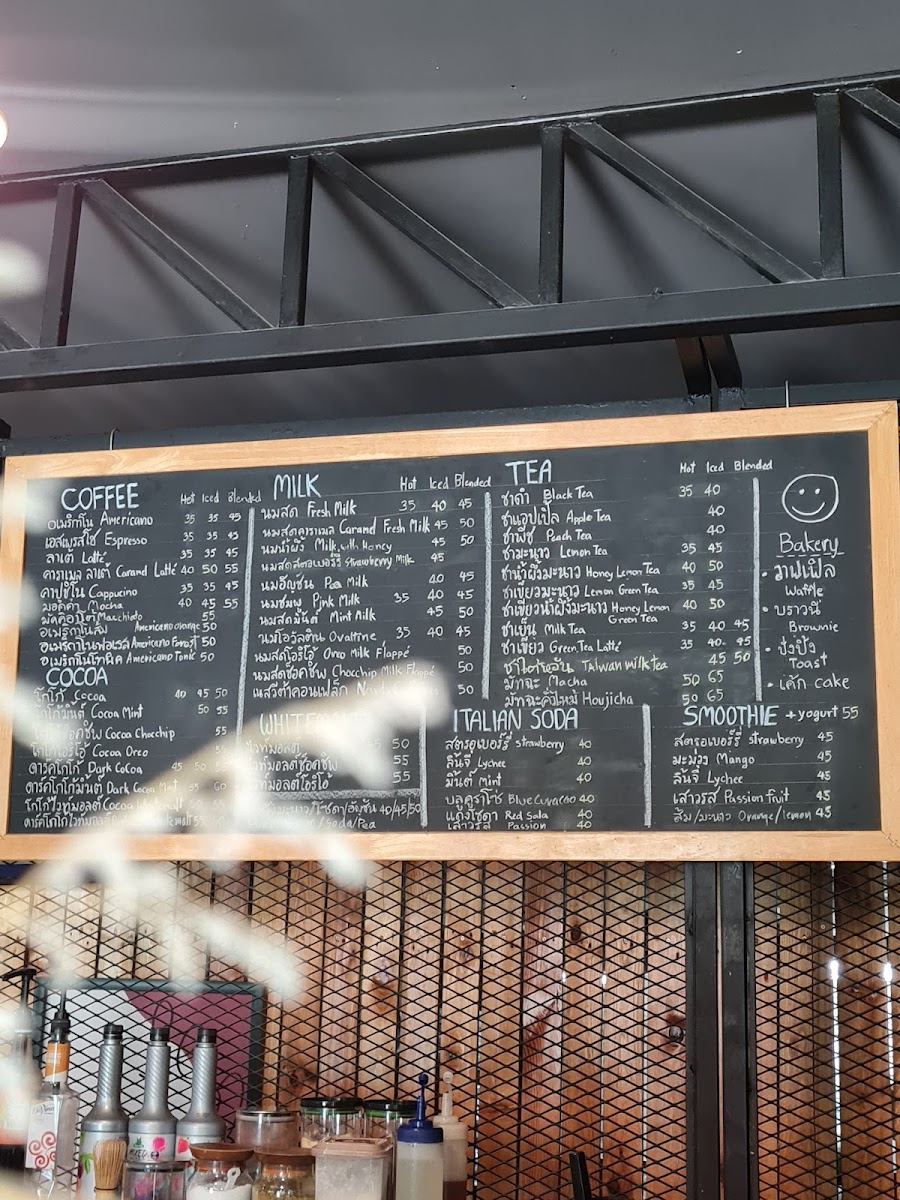 COFFEE Hot Iced Blended
อเมริกาโน Americano 35 35 45
เอสเพรสโซ่ Espresso 35 35 45
ลาเต้ Latté 35 35 45
คาราเมล ลาเต้ Caramel Latté 40 50 55
คาปูชิโน Cappucino 35 35 45
มอคค่า Mocha 40 45 55
Macchiato 55
อเมริกาโนส้ม Americano orange 50
Americano Forrest 50
อเมริกาโนโทนิค Americano Tonic 50
COCOA
โกโก้ Cocoa 40 45 50
โกโก้มิ้นต์ Cocoa Mint 50 55
Cocoa Chocchip 55
โกโก้โอริโอ้ Cocoa Oreo
ดาร์คโกโก้ Dark Cocoa 45
ดาร์คโกโก้มิ้นต์ Dark Cocoa Mint
โกโก้ไวท์มอลต์ Cocoa
MILK Hot Iced Blended
นมสด Fresh Milk 35 40 45
นมสดคาราเมล Caramel Fresh Milk 45 50
นมน้ำผึ้ง Milk with Honey 45 50
นมสดสตรอเบอร์รี่ Strawberry Milk 45
นมอัญชัน Pea Milk 40 45
นมชมพู Pink Milk 35 40 45
นมสดมิ้นต์ Mint Milk 45 50
นมโอวัลติน Ovaltine 35 40 45
นมสดโอริโอ้ Oreo Milk Flappé 50
นมสดช็อคชิพ Chocchip Milk Flappé 50
เนสวีต้าคอนเฟล็ก 50
50
ไวท์มอลต์ช็อคชิพ 55
ไวท์มอลต์โอริโอ้ 55
มะนาว/โซดา/อัญชัน 40/45/50
/Soda/Pea
TEA Hot Iced Blended
ชาดำ Black Tea 35 40
ชาแอปเปิ้ล Apple Tea 40
ชาพีช Peach Tea 40
ชามะนาว Lemon Tea 35 45
ชาน้ำผึ้งมะนาว Honey Lemon Tea 40 50
ชาเขียวมะนาว Lemon Green Tea 35 45
ชาเขียวน้ำผึ้งมะนาว Honey Lemon Green Tea 40 50
ชาเย็น Milk Tea 35 40 45
ชาเขียว Green Tea Latté 35 40 45
ชาไต้หวัน Taiwan milk tea 45 50
มัทฉะ Macha 50 65
Houjicha 50 65
ITALIAN SODA
สตรอเบอร์รี่ Strawberry 40
ลิ้นจี่ Lychee 40
มิ้นต์ Mint 40
บลูคูราโซ Blue Curacao 40
แดงโซดา Red Sala 40
เสาวรส Passion 40
SMOOTHIE +yogurt 55
สตรอเบอร์รี่ Strawberry 45
มะม่วง Mango 45
ลิ้นจี่ Lychee 45
เสาวรส Passion Fruit 45
ส้ม/มะนาว Orange/lemon 45
Bakery
• วาฟเฟิล
Waffle
• บราวนี่
Brownie
• ปังปิ้ง
Toast
• เค้ก cake